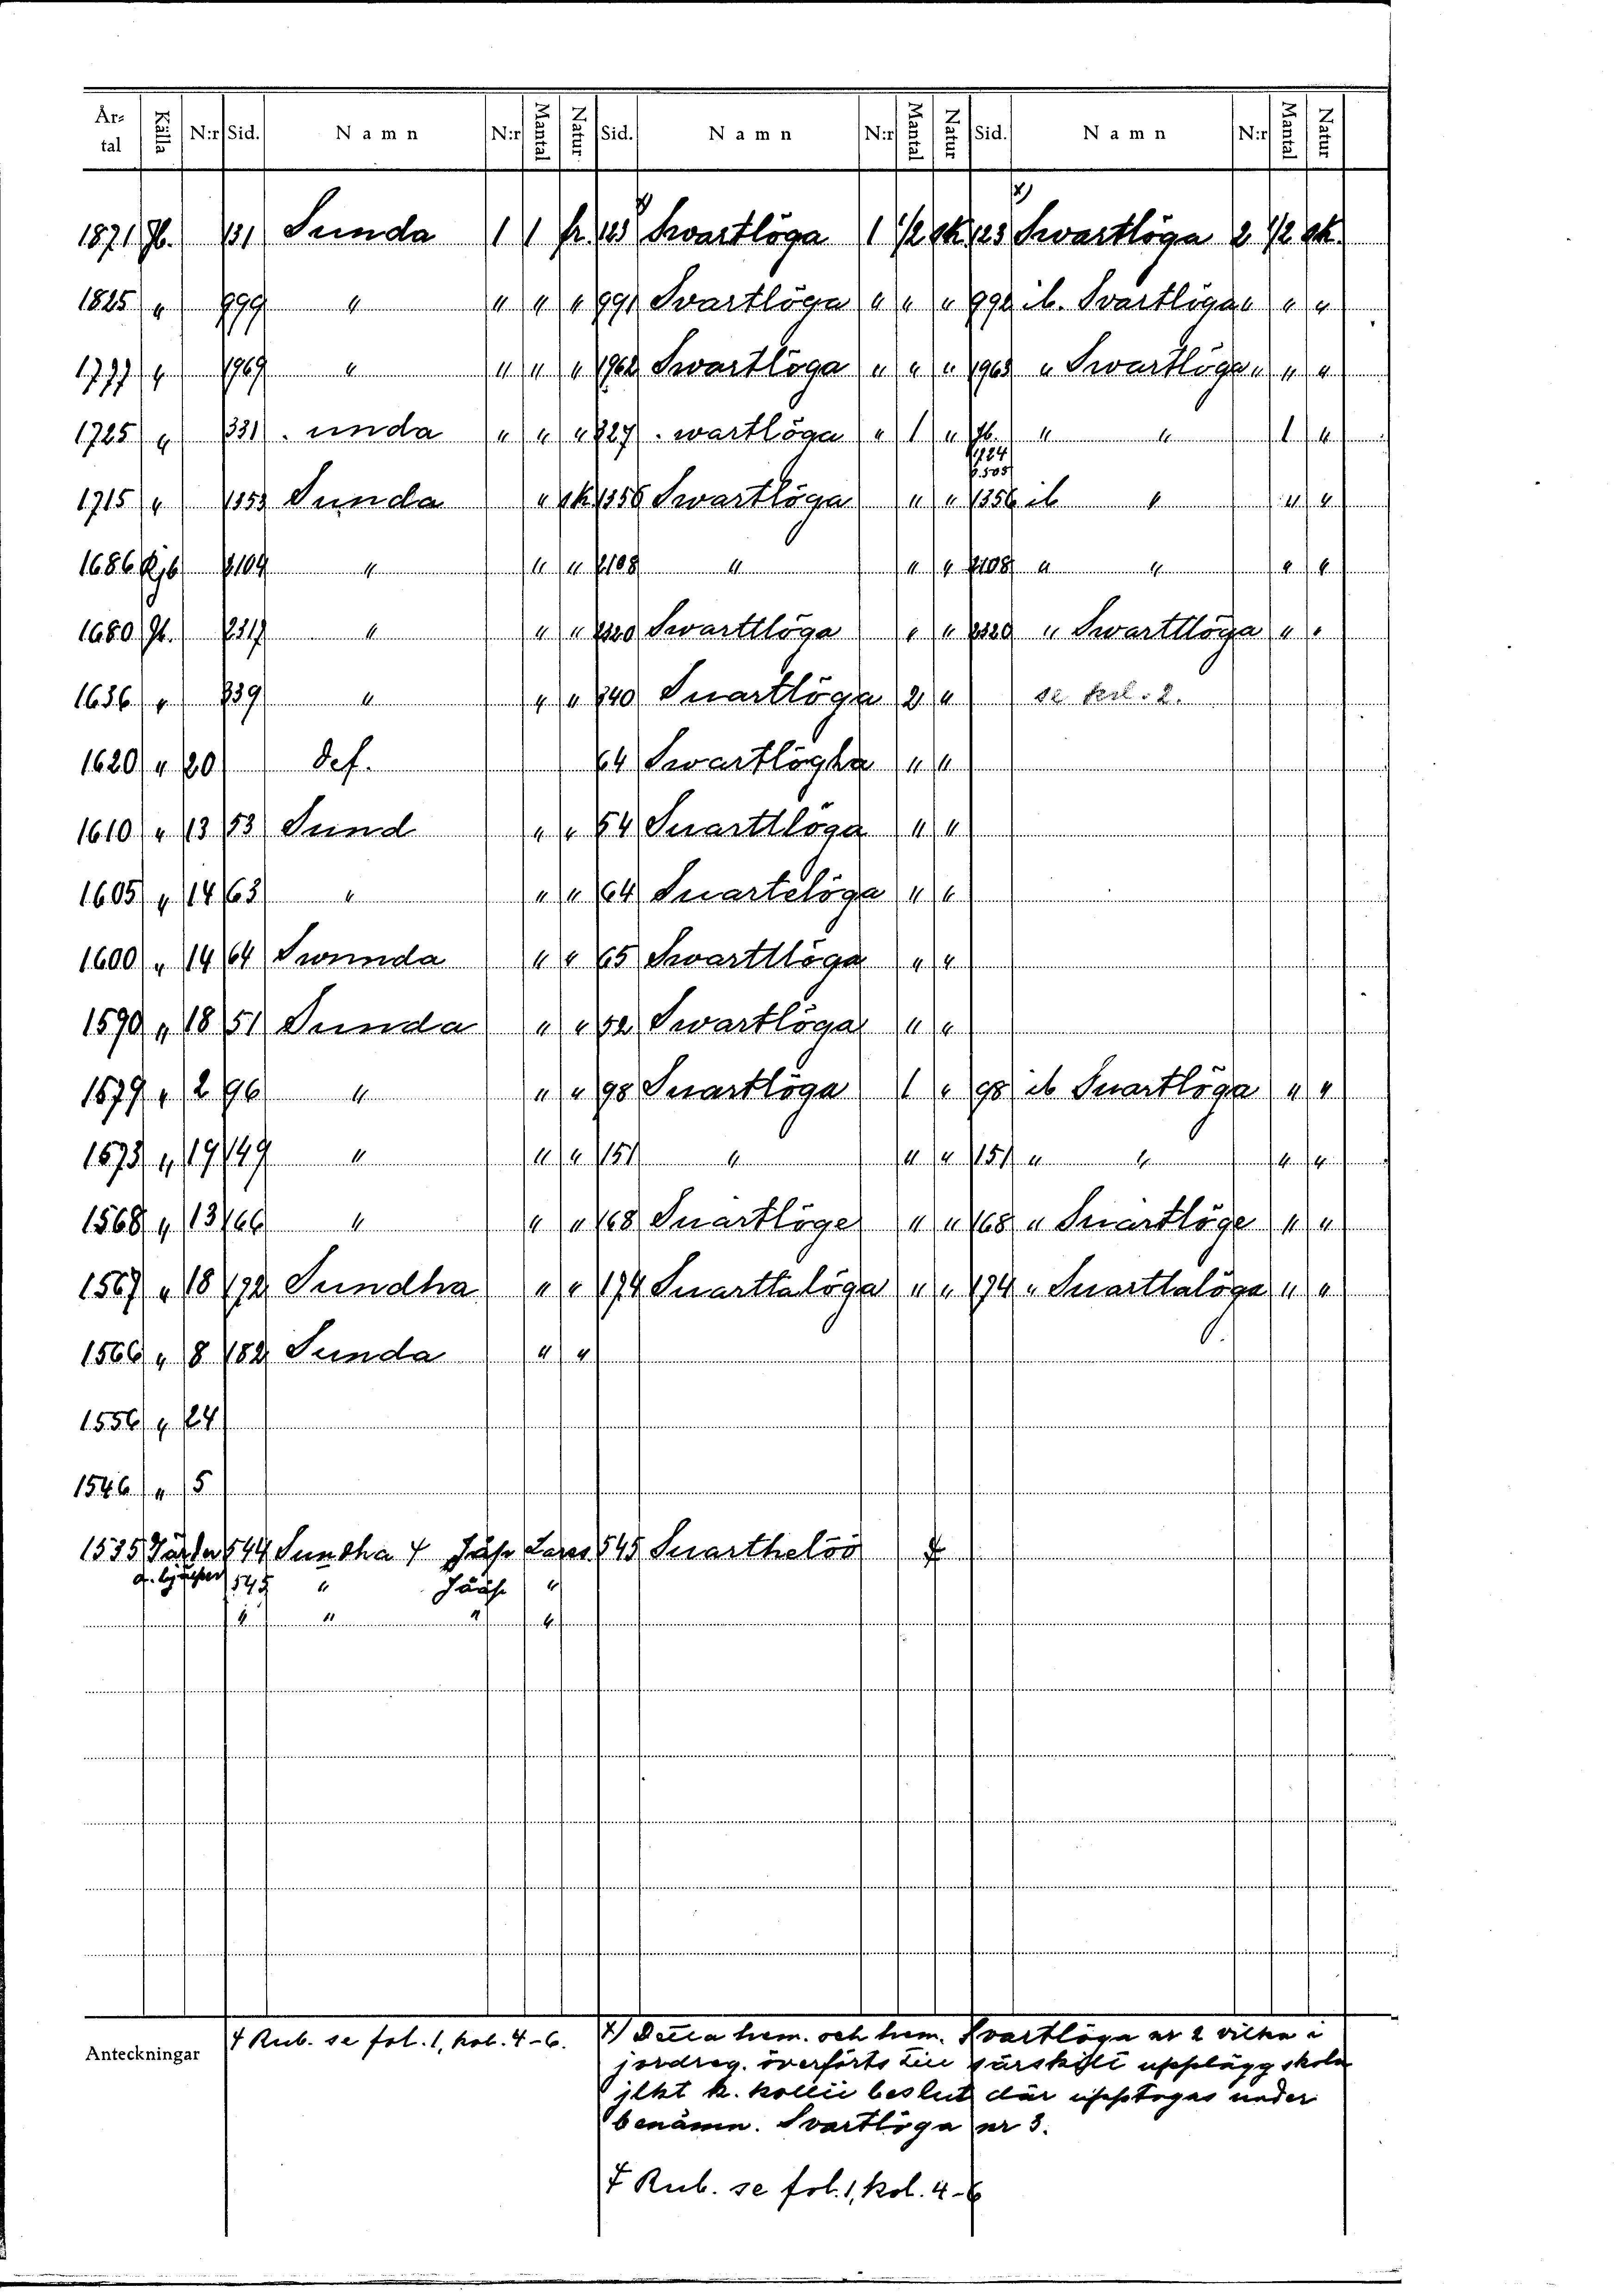 År-tal Källa N:r Sid. Namn N:r Mantal Natur Sid. Namn N:r Mantal Natur Sid. Namn N:r Mantal Natur
1871 Jb. 131 Sunda 1 1 fr. 125 x) Svartlöga 1 1/2 sk. 125 x) Svartlöga 2 1/2 sk.
1825 " 999 " " " " 991 Svartlöga " " " 992 ib. Svartlöga " " "
1797 " 1969 " " " " 1962 Swartlöga " " " 1963 " Swartlöga " " "
1725 " 1331 . unda " " " 1327 . wartlöga " 1 " Jb. " " 1 "
1724
s. 505
1715 " 1353 Sunda " sk. 1356 Swartlöga " " 1356 ib " " "
1686 Rjb 2109 " " " 2108 " " " 2108 " " " "
1680 Jb. 2317 " " " 2320 Swarttlöga " " 2320 " Swarttlöga " "
1636 " 839 " " " 840 Suartlöga 2 " se kol. 2.
1620 " 20 Def. 64 Swartlögha " "
1610 " 13 53 Sund " " 54 Suarttlöga " "
1605 " 14 63 " " " 64 Suartelöga " "
1600 " 14 64 Swnnda " " 65 Swarttlöga " "
1590 " 18 51 Sunda " " 52 Swartlöga " "
1579 " 2 96 " " " 98 Suartlöga 1 " 98 ib Suartlöga " "
1573 " 19 149 " " " 151 " " " 151 " " " "
1568 " 13 166 " " " 168 Suartlöge " " 168 " Suartlöge " "
1567 " 18 172 Sundha " " 174 Suarttalöga " " 174 " Suarttalöga " "
1566 " 8 182 Sunda " "
1556 " 24
1546 " 5
1535 544 Sundha ‡ Lares 545 Suarthelöö ‡
545 " "
" " " "
Anteckningar
‡ Rub. se fol. 1, kol. 4-6.
x) Detta hem. och hem. Svartlöga nr 2 vilka i
jordreg. överförts till särskilt upplägg skola
jlkt k. kollii beslut där upptagas under
benämn. Svartlöga nr 3.
‡ Rub. se fol. 1, kol. 4-6